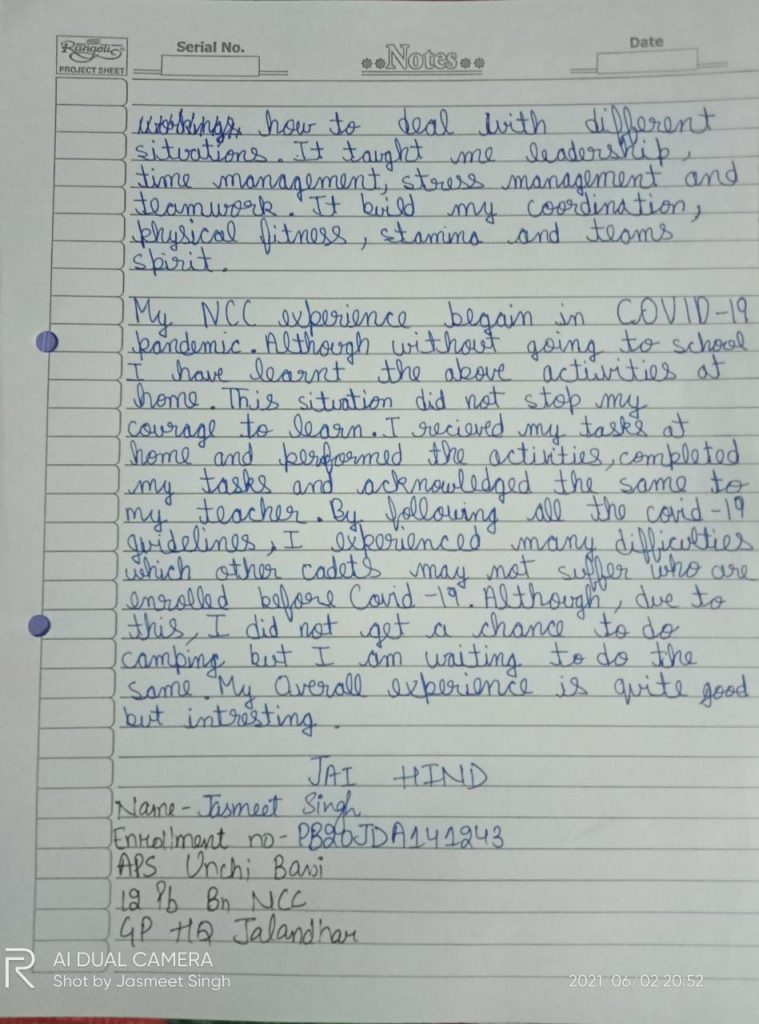 Rangolis
PROJECT SHEET
Serial No.
Notes
Date
how to deal with different
situations. It taught me leadership,
time management, stress management and
teamwork. It build my coordination,
physical fitness, stamina and teams
spirit.
My NCC experience begain in COVID-19
pandemic. Although without going to school
I have learnt the above activities at
home. This situation did not stop my
courage to learn. I recieved my tasks at
home and performed the activities, completed
my tasks and acknowledged the same to
my teacher. By following all the covid-19
guidelines, I experienced many difficulties
which other cadets may not suffer who are
enrolled before Covid-19. Although, due to
this, I did not get a chance to do
camping but I am waiting to do the
same. My Overall experience is quite good
but intresting.
JAI HIND
Name- Jasmeet Singh
Enrollment no- PB20JDA141243
APS Unchi Bassi
12 Pb Bn NCC
GP HQ Jalandhar
AI DUAL CAMERA
Shot by Jasmeet Singh
2021/06/02 20:52